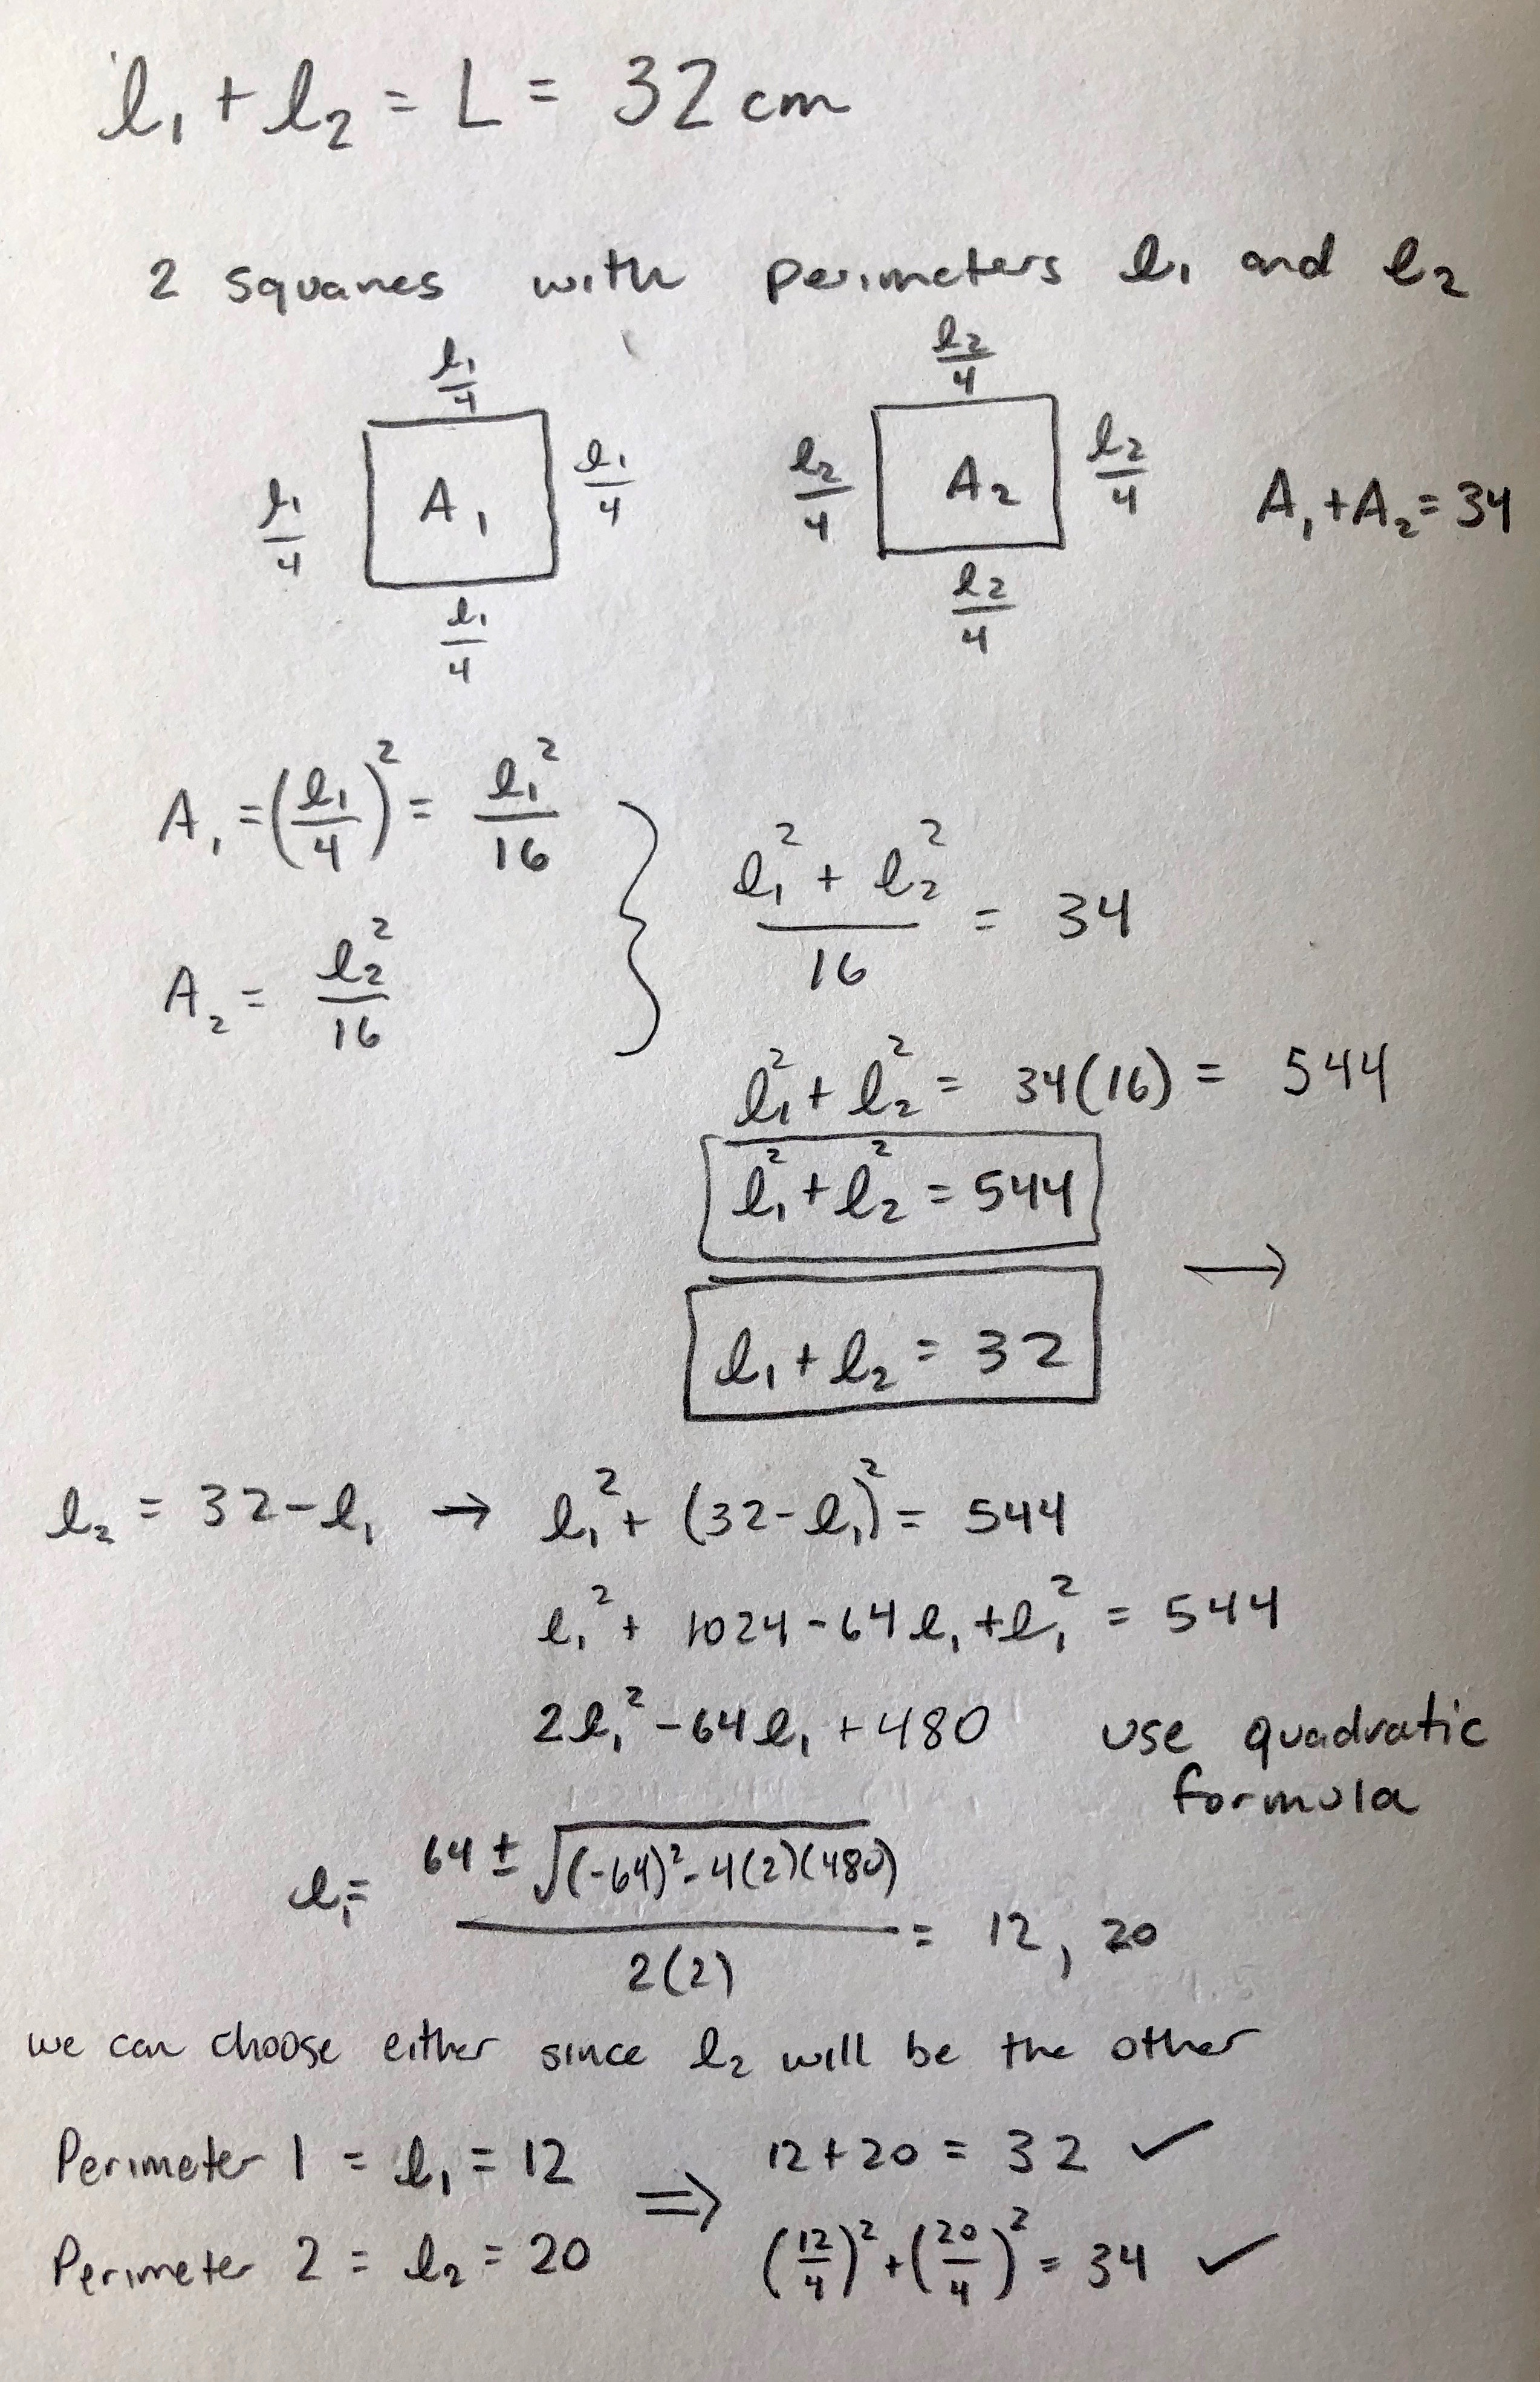 l₁ + l₂ = L = 32 cm
2 squares with perimeters l₁ and l₂
l₁/4
l₁/4 A₁ l₁/4
l₁/4
l₂/4
l₂/4 A₂ l₂/4
l₂/4
A₁ + A₂ = 34
A₁ = (l₁/4)² = l₁²/16
A₂ = l₂²/16
(l₁² + l₂²)/16 = 34
l₁² + l₂² = 34(16) = 544
l₁² + l₂² = 544
→
l₁ + l₂ = 32
l₂ = 32 - l₁ → l₁² + (32 - l₁)² = 544
l₁² + 1024 - 64l₁ + l₁² = 544
2l₁² - 64l₁ + 480 use quadratic
formula
l₁ = (64 ± √((-64)² - 4(2)(480)))/(2(2)) = 12, 20
we can choose either since l₂ will be the other
Perimeter 1 = l₁ = 12 ⟹ 12 + 20 = 32 ✓
Perimeter 2 = l₂ = 20 (12/4)² + (20/4)² = 34 ✓